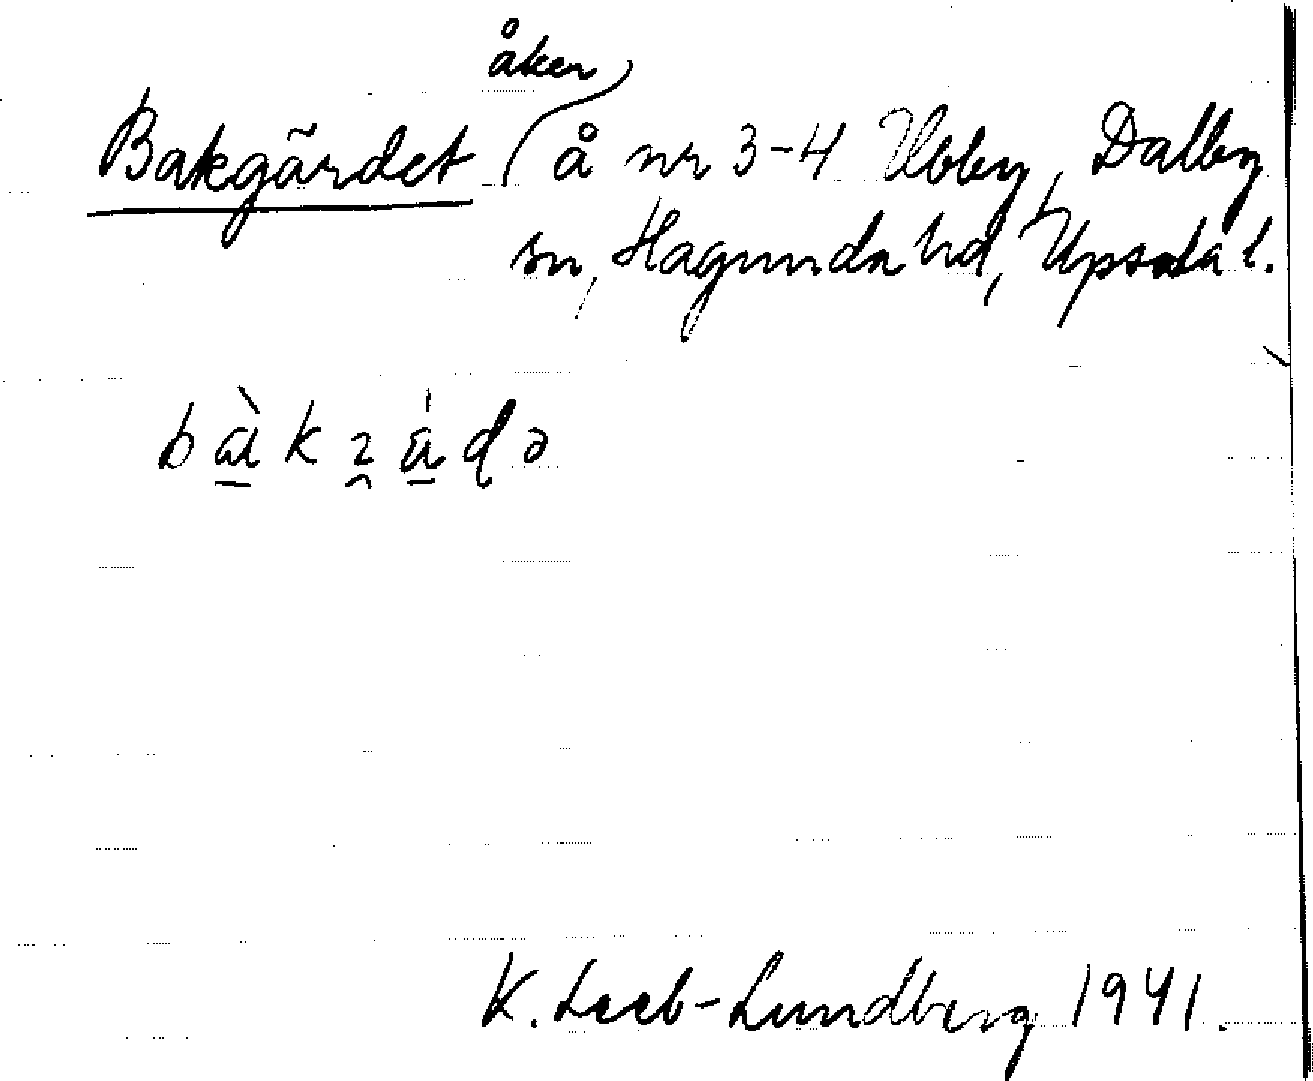 åker
Bakgärdet å nr 3-4 Ubby, Dalby
sn, Hagunda hd, Upsala l.
K. Leeb-Lundberg 1941.